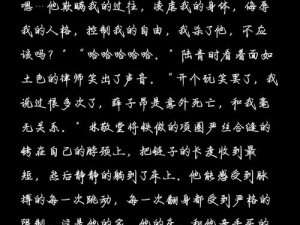 嗯…他欺瞒我的过往，凌虐我的身体，侮辱
我的人格，控制我的自由，我杀了他，不应
该吗？”“哈哈哈哈哈。”陆青时看着面如
土色的律师笑出了声音。“开个玩笑罢了，我
说过很多次了，薛子昂是意外死亡，和我毫
无关系。”林敬堂将铁做的项圈严丝合缝的
铐在自己的脖颈上，把链子的长度收到最
短，然后静静的躺到了床上。他能感受到脉
搏的每一次跳动，每一次翻身都受到严格的